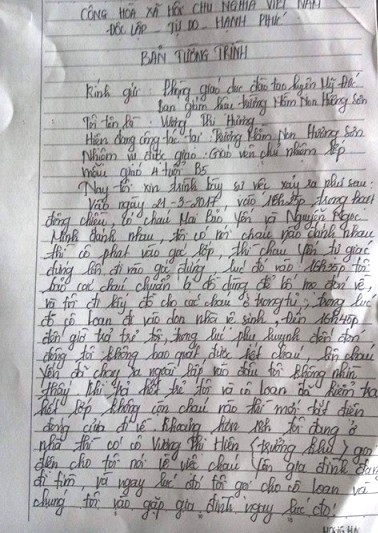 CỘNG HÒA XÃ HỘI CHỦ NGHĨA VIỆT NAM
ĐỘC LẬP - TỰ DO - HẠNH PHÚC
BẢN TƯỜNG TRÌNH
Kính gửi: Phòng giáo dục đào tạo huyện Mỹ Đức
Ban giám hiệu trường Mầm Non Hương Sơn
Tôi tên là: Vương Thị Hường
Hiện đang công tác tại: Trường Mầm Non Hương Sơn
Nhiệm vụ được giao: Giáo viên chủ nhiệm lớp
mẫu giáo 4 tuổi B5
Nay tôi xin trình bày sự việc xảy ra như sau:
Vào ngày 21-3-2017, vào 16h25p trong hoạt
động chiều, có cháu Mai Bảo Yến và Nguyễn Ngọc
Minh đánh nhau, tôi có nói cháu nào đánh nhau
thì cô phạt vào góc lớp, thì cháu Yến tự giác
đứng lên đi vào góc đứng lúc đó vào 16h35p tôi
bảo các cháu chuẩn bị đồ dùng để bố mẹ đón về,
và tôi đi lấy đồ cho các cháu ở trong tủ, trong lúc
đó cô Loan đi vào dọn nhà vệ sinh. Đến 16h45p
đến giờ trả trẻ tôi, trong lúc phụ huynh đến đón
đông tôi không bao quát được hết cháu, lên cháu
Yến đi chạy ra ngoài lớp vào đâu tôi không nhìn
thấy khi trả hết trẻ tôi và cô Loan đã kiểm tra
hết lớp không còn cháu nào thì mới tắt điện
đóng cửa đi về. Khoảng hơn 18h tôi đang ở
nhà thì có cô Vương Thị Hiền (trưởng khu) gọi
điện cho tôi nói về việc cháu Yến gia đình đang
đi tìm và ngay lúc đó tôi gọi cho cô Loan và
chúng tôi vào gặp gia đình ngay lúc đó.